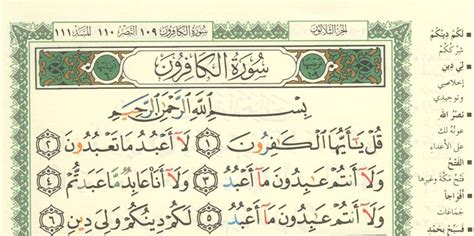 الجزء الثلاثون
سورة الكافرون ١٠٩ النصر ١١٠ المسد ١١١
سُورَةُ الكافِرُونَ
بِسْمِ اللَّهِ الرَّحْمَٰنِ الرَّحِيمِ
قُلْ يَا أَيُّهَا الْكَافِرُونَ ١ لَا أَعْبُدُ مَا تَعْبُدُونَ ٢
وَلَا أَنتُمْ عَابِدُونَ مَا أَعْبُدُ ٣ وَلَا أَنَا عَابِدٌ مَّا عَبَدتُّمْ ٤
وَلَا أَنتُمْ عَابِدُونَ مَا أَعْبُدُ ٥ لَكُمْ دِينُكُمْ وَلِيَ دِينِ ٦
لَكُمْ دِينُكُمْ
شرككم
لِيَ دِينِ
إخلاصي
وتوحيدي
نَصْرُ الله
عونُه لك
على الأعداء
الفَتْحُ
فتح مكة وغيرها
أفواجاً
جماعات
فسبح بحمد